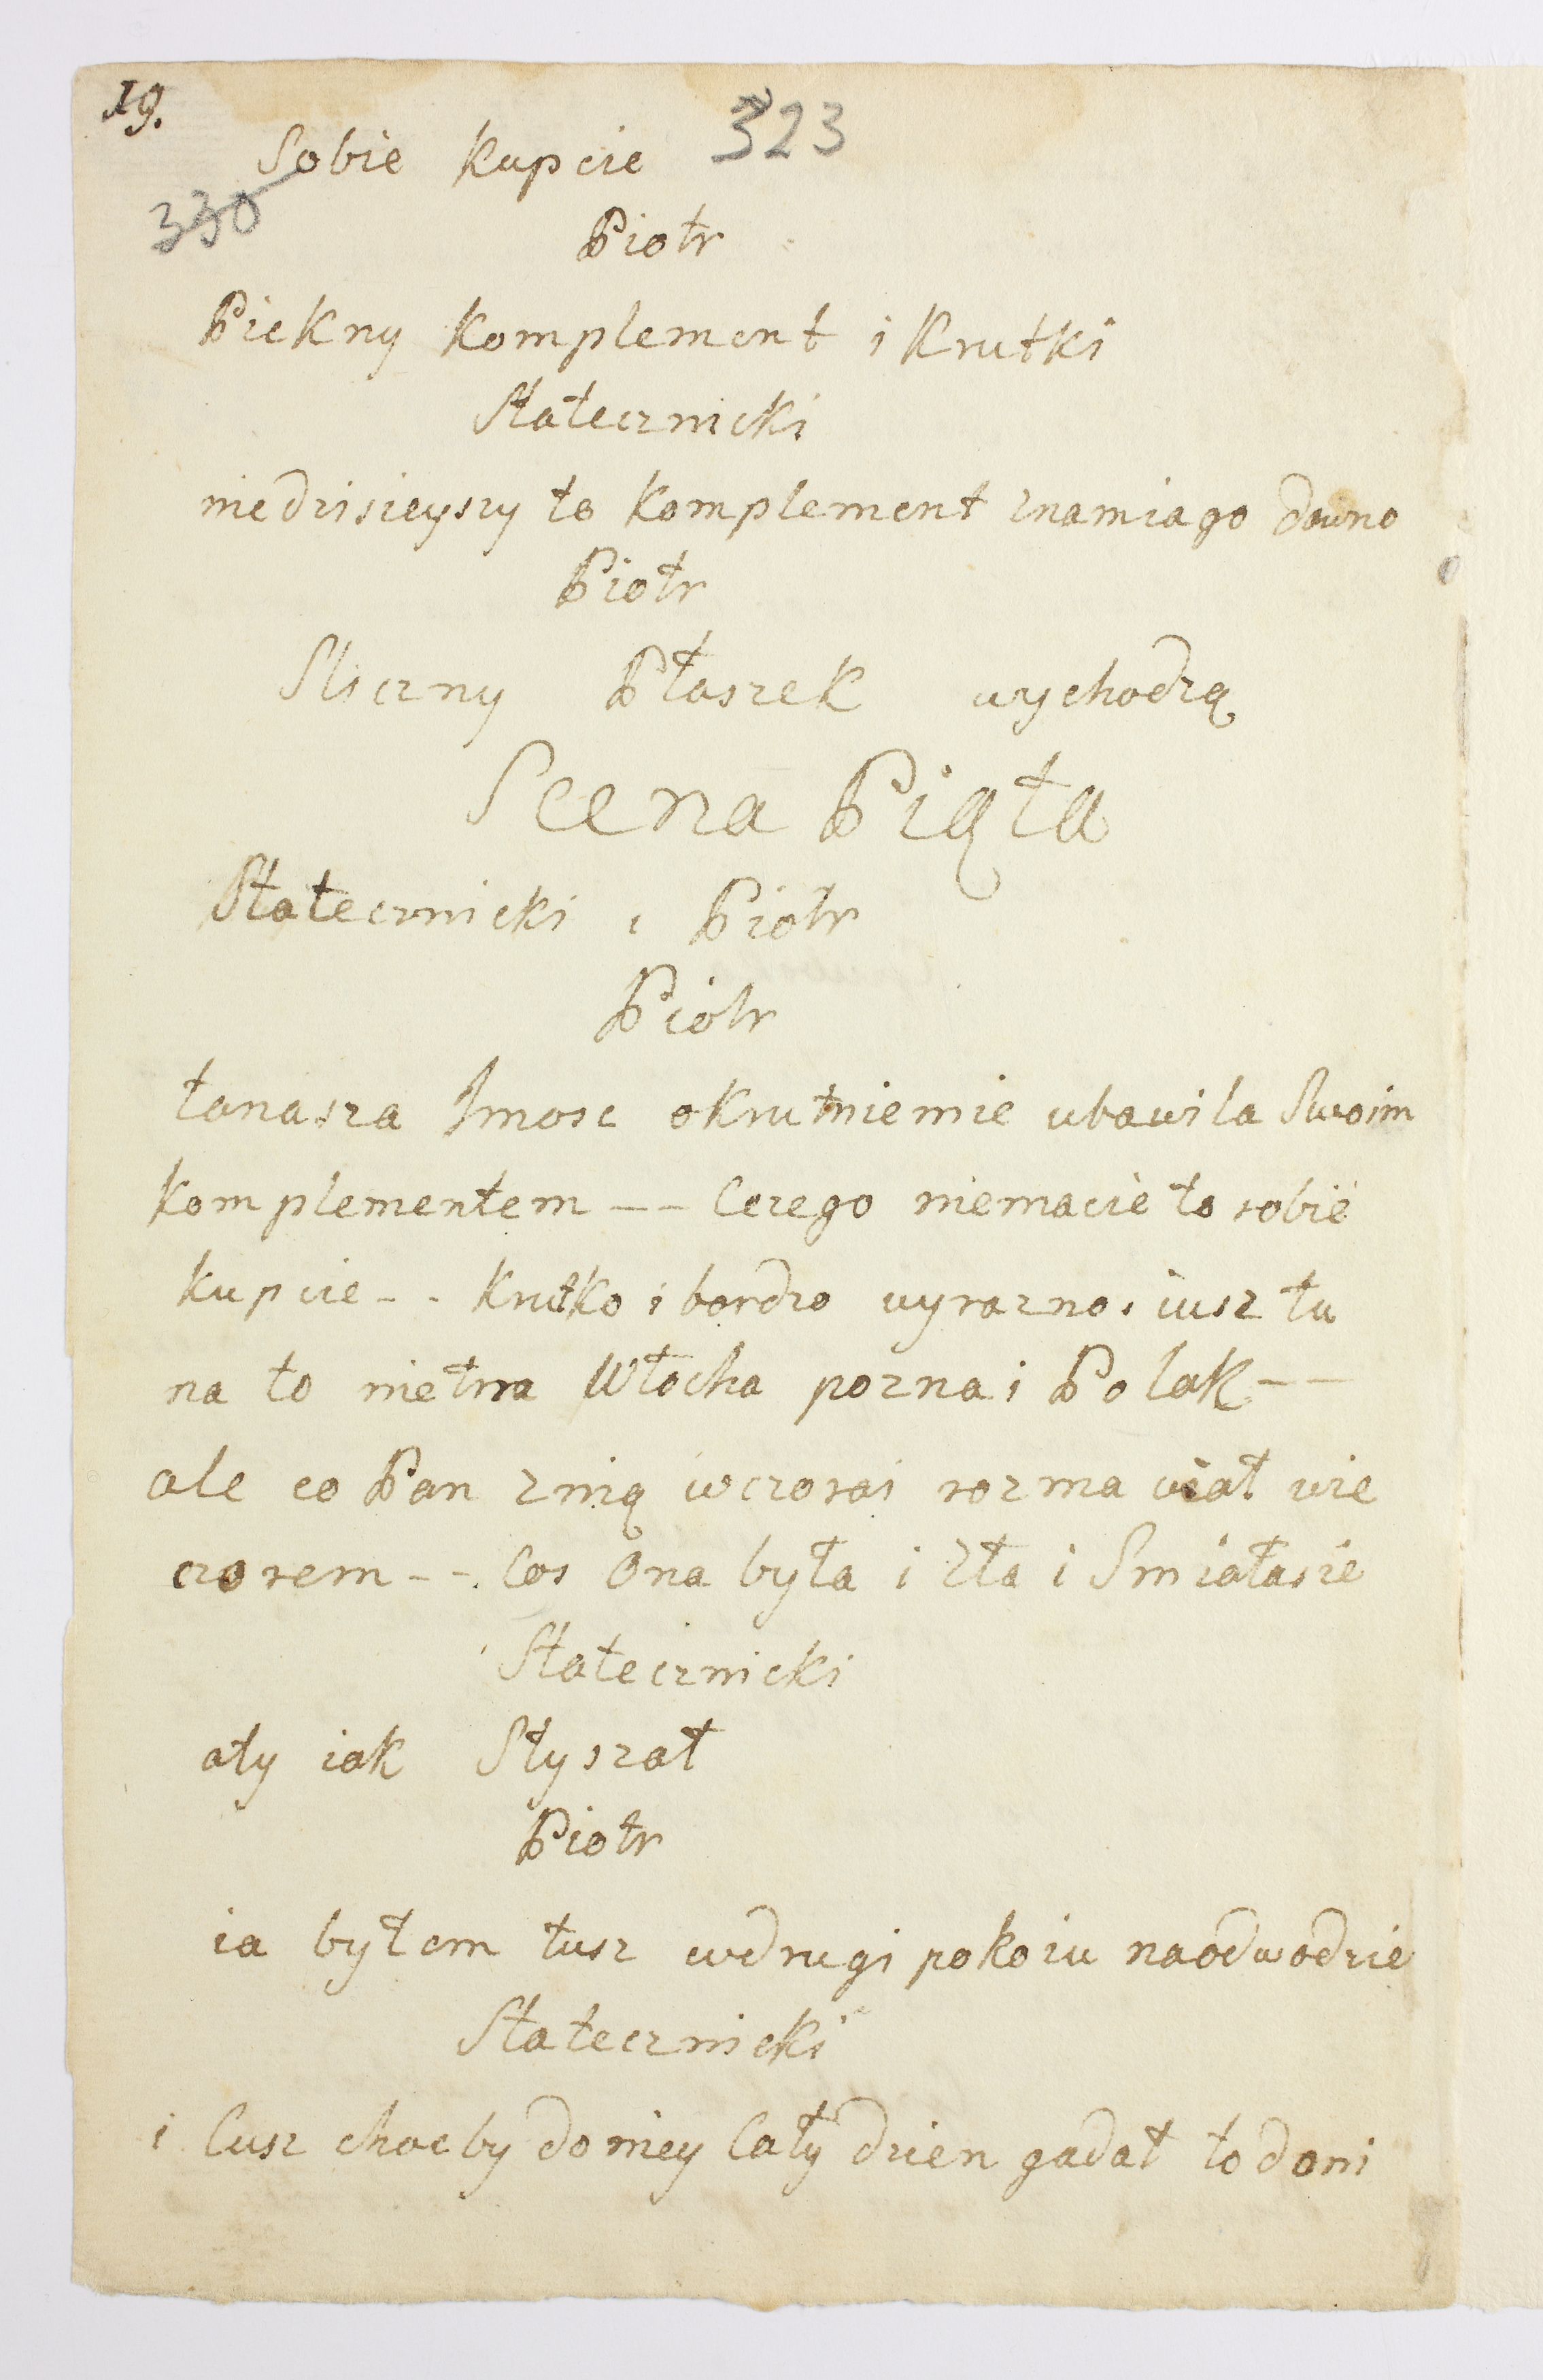 19.
323
Sobie kupcie
330
Piotr
Piekny komplement i krutki
Statecznicki
niedzisieyszy to komplement znamiago dawno
Piotr
Sliczny Ptaszek wychodzą
Scena Piąta
Statecznicki i Piotr
Piotr
tanasza Jmosc okrutniemie ubawila Swoim
komplementem -- Czego niemacie to sobie
kupcie -- krutko i bardzo wyrazno. iusz tu
na to nietrza Włocha pozna i Polak --
ale co Pan znią wczorai rozma wiał wie
czorem -- Cos Ona była i zła i Smiałasie
Statecznicki
aty iak Słyszał
Piotr
ia byłem tusz wdrugi pokoiu naodwodzie
Statecznicki
i Cusz chocby doniey Cały dzien gadał to doni